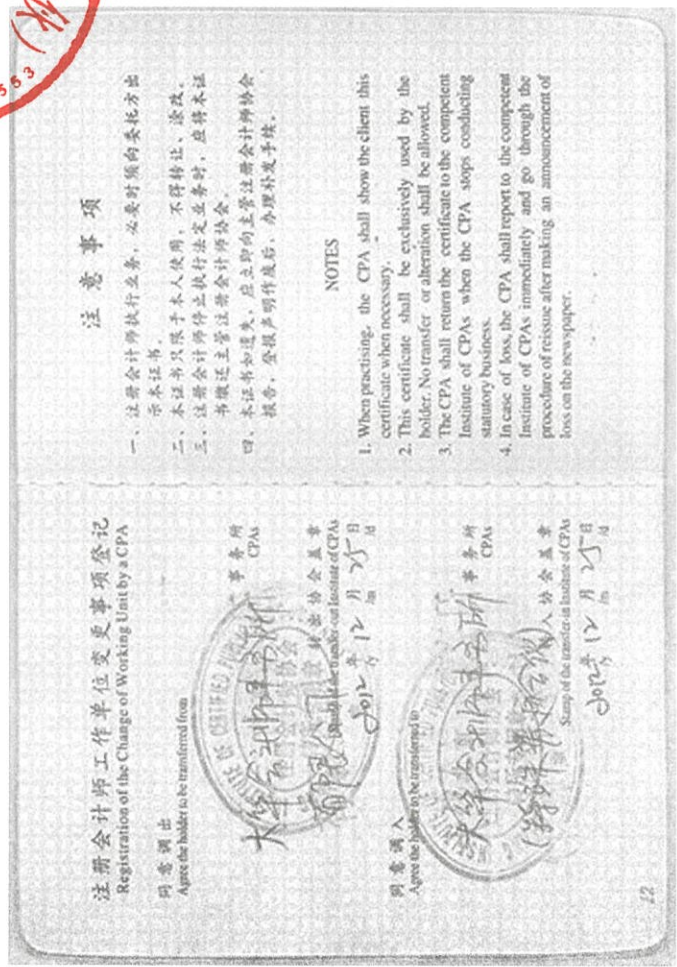 注册会计师工作单位变更事项登记
Registration of the Change of Working Unit by a CPA
同意调出
Agree the holder to be transferred from
大华会计师事务所
有限公司
事务所
CPAs
转出协会盖章
Stamp of the transfer-out Institute of CPAs
2012年12月25日
/y /m /d
同意调入
Agree the holder to be transferred to
大华会计师事务所
(特殊普通合伙)
事务所
CPAs
转入协会盖章
Stamp of the transfer-in Institute of CPAs
2012年12月25日
/y /m /d
12
注意事项
一、注册会计师执行业务,必要时须向委托方出
示本证书。
二、本证书只限于本人使用,不得转让、涂改。
三、注册会计师停止执行法定业务时,应将本证
书缴还主管注册会计师协会。
四、本证书如遗失,应立即向主管注册会计师协会
报告,登报声明作废后,办理补发手续。
NOTES
1. When practising, the CPA shall show the client this
certificate when necessary.
2. This certificate shall be exclusively used by the
holder. No transfer or alteration shall be allowed.
3. The CPA shall return the certificate to the competent
Institute of CPAs when the CPA stops conducting
statutory business.
4. In case of loss, the CPA shall report to the competent
Institute of CPAs immediately and go through the
procedure of reissue after making an announcement of
loss on the newspaper.